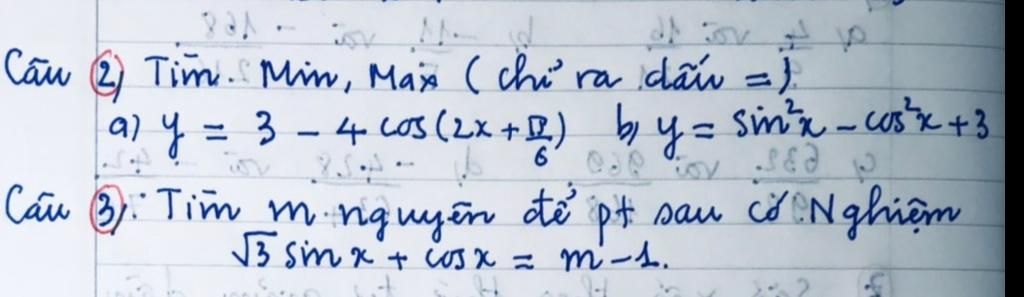 Câu 2) Tìm Min, Max (chỉ ra dấu =)
a) y = 3 - 4 cos(2x + π/6) b) y = sin²x - cos²x + 3
Câu 3): Tìm m nguyên để pt sau có Nghiệm
√3 sin x + cos x = m - 1.